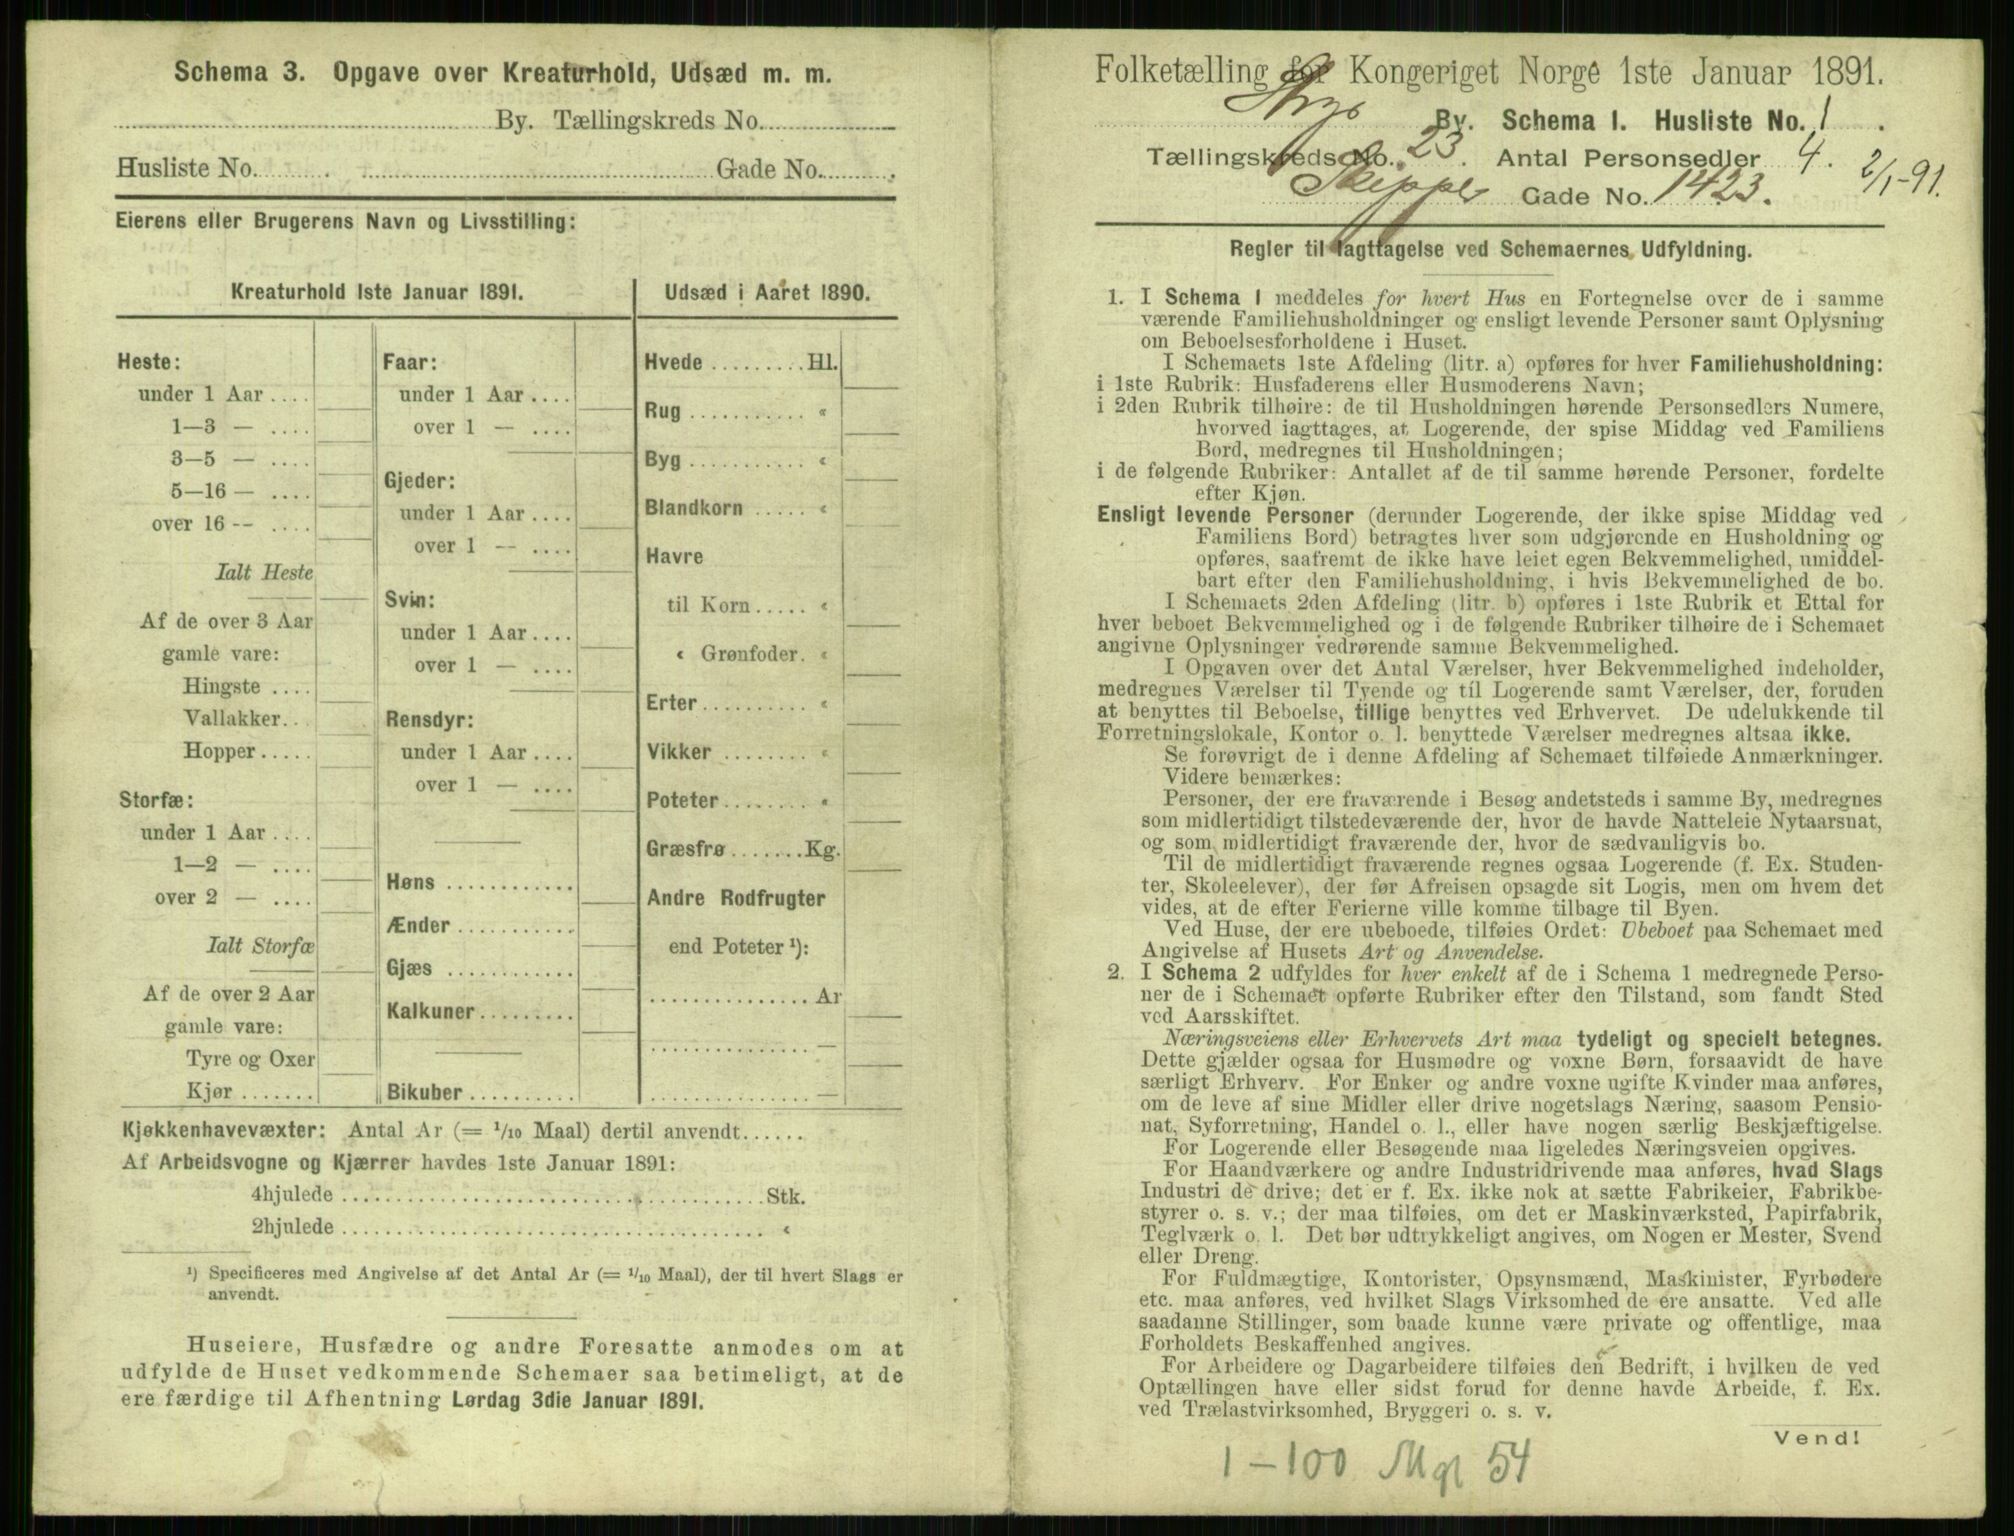 Schema 3. Opgave over Kreaturhold, Udsæd m. m.
By. Tællingskreds No.
Husliste No. . Gade No. .
Eierens eller Brugerens Navn og Livsstilling:
Kreaturhold 1ste Januar 1891.
Heste:
under 1 Aar ....
1—3 — ....
3—5 — ....
5—16 — ....
over 16 — ....
Ialt Heste
Af de over 3 Aar
gamle vare:
Hingste ....
Vallakker...
Hopper.....
Storfæ:
under 1 Aar ....
1—2 — ....
over 2 — ....
Ialt Storfæ
Af de over 2 Aar
gamle vare:
Tyre og Oxer
Kjør .......
Faar:
under 1 Aar ....
over 1 — ....
Gjeder:
under 1 Aar ....
over 1 — ....
Svin:
under 1 Aar ....
over 1 — ....
Rensdyr:
under 1 Aar ....
over 1 — ....
Høns ............
Ænder ...........
Gjæs ............
Kalkuner.........
Bikuber ..........
Udsæd i Aaret 1890.
Hvede ......... Hl.
Rug ........... «
Byg ........... «
Blandkorn ..... «
Havre
til Korn ..... «
« Grønfoder. «
Erter.......... «
Vikker ........ «
Poteter........ «
Græsfrø .......Kg.
Andre Rodfrugter
end Poteter ¹):
............... Ar
............... —
............... —
Kjøkkenhavevæxter: Antal Ar (= 1/10 Maal) dertil anvendt......
Af Arbeidsvogne og Kjærrer havdes 1ste Januar 1891:
4hjulede ........................................ Stk.
2hjulede ........................................ «
¹) Specificeres med Angivelse af det Antal Ar (= 1/10 Maal), der til hvert Slags er
anvendt.
Huseiere, Husfædre og andre Foresatte anmodes om at
udfylde de Huset vedkommende Schemaer saa betimeligt, at de
ere færdige til Afhentning Lørdag 3die Januar 1891.
Folketælling for Kongeriget Norge 1ste Januar 1891.
By. Schema I. Husliste No. 1 .
Tællingskreds No. 23 . Antal Personsedler 4.
2/1-91.
Skipper Gade No. 1423.
Regler til Iagttagelse ved Schemaernes Udfyldning.
1. I Schema 1 meddeles for hvert Hus en Fortegnelse over de i samme
værende Familiehusholdninger og ensligt levende Personer samt Oplysning
om Beboelsesforholdene i Huset.
I Schemaets 1ste Afdeling (litr. a) opføres for hver Familiehusholdning:
i 1ste Rubrik: Husfaderens eller Husmoderens Navn;
i 2den Rubrik tilhøire: de til Husholdningen hørende Personsedlers Numere,
hvorved iagttages, at Logerende, der spise Middag ved Familiens
Bord, medregnes til Husholdningen;
i de følgende Rubriker: Antallet af de til samme hørende Personer, fordelte
efter Kjøn.
Ensligt levende Personer (derunder Logerende, der ikke spise Middag ved
Familiens Bord) betragtes hver som udgjørende en Husholdning og
opføres, saafremt de ikke have leiet egen Bekvemmelighed, umiddel-
bart efter den Familiehusholdning, i hvis Bekvemmelighed de bo.
I Schemaets 2den Afdeling (litr. b) opføres i 1ste Rubrik et Ettal for
hver beboet Bekvemmelighed og i de følgende Rubriker tilhøire de i Schemaet
angivne Oplysninger vedrørende samme Bekvemmelighed.
I Opgaven over det Antal Værelser, hver Bekvemmelighed indeholder,
medregnes Værelser til Tyende og til Logerende samt Værelser, der, foruden
at benyttes til Beboelse, tillige benyttes ved Erhvervet. De udelukkende til
Forretningslokale, Kontor o. l. benyttede Værelser medregnes altsaa ikke.
Se forøvrigt de i denne Afdeling af Schemaet tilføiede Anmærkninger.
Videre bemærkes:
Personer, der ere fraværende i Besøg andetsteds i samme By, medregnes
som midlertidigt tilstedeværende der, hvor de havde Natteleie Nytaarsnat,
og som midlertidigt fraværende der, hvor de sædvanligvis bo.
Til de midlertidigt fraværende regnes ogsaa Logerende (f. Ex. Studen-
ter, Skoleelever), der før Afreisen opsagde sit Logis, men om hvem det
vides, at de efter Ferierne ville komme tilbage til Byen.
Ved Huse, der ere ubeboede, tilføies Ordet: Ubeboet paa Schemaet med
Angivelse af Husets Art og Anvendelse.
2. I Schema 2 udfyldes for hver enkelt af de i Schema 1 medregnede Perso-
ner de i Schemaet opførte Rubriker efter den Tilstand, som fandt Sted
ved Aarsskiftet.
Næringsveiens eller Erhvervets Art maa tydeligt og specielt betegnes.
Dette gjælder ogsaa for Husmødre og voxne Børn, forsaavidt de have
særligt Erhverv. For Enker og andre voxne ugifte Kvinder maa anføres,
om de leve af sine Midler eller drive nogetslags Næring, saasom Pensio-
nat, Syforretning, Handel o. l., eller have nogen særlig Beskjæftigelse.
For Logerende eller Besøgende maa ligeledes Næringsveien opgives.
For Haandværkere og andre Industridrivende maa anføres, hvad Slags
Industri de drive; det er f. Ex. ikke nok at sætte Fabrikeier, Fabrikbe-
styrer o. s. v.; der maa tilføies, om det er Maskinværksted, Papirfabrik,
Teglværk o. l. Det bør udtrykkeligt angives, om Nogen er Mester, Svend
eller Dreng.
For Fuldmægtige, Kontorister, Opsynsmænd, Maskinister, Fyrbødere
etc. maa anføres, ved hvilket Slags Virksomhed de ere ansatte. Ved alle
saadanne Stillinger, som baade kunne være private og offentlige, maa
Forholdets Beskaffenhed angives.
For Arbeidere og Dagarbeidere tilføies den Bedrift, i hvilken de ved
Optællingen have eller sidst forud for denne havde Arbeide, f. Ex.
ved Trælastvirksomhed, Bryggeri o. s. v.
Vend!
1-100 Mgl 54